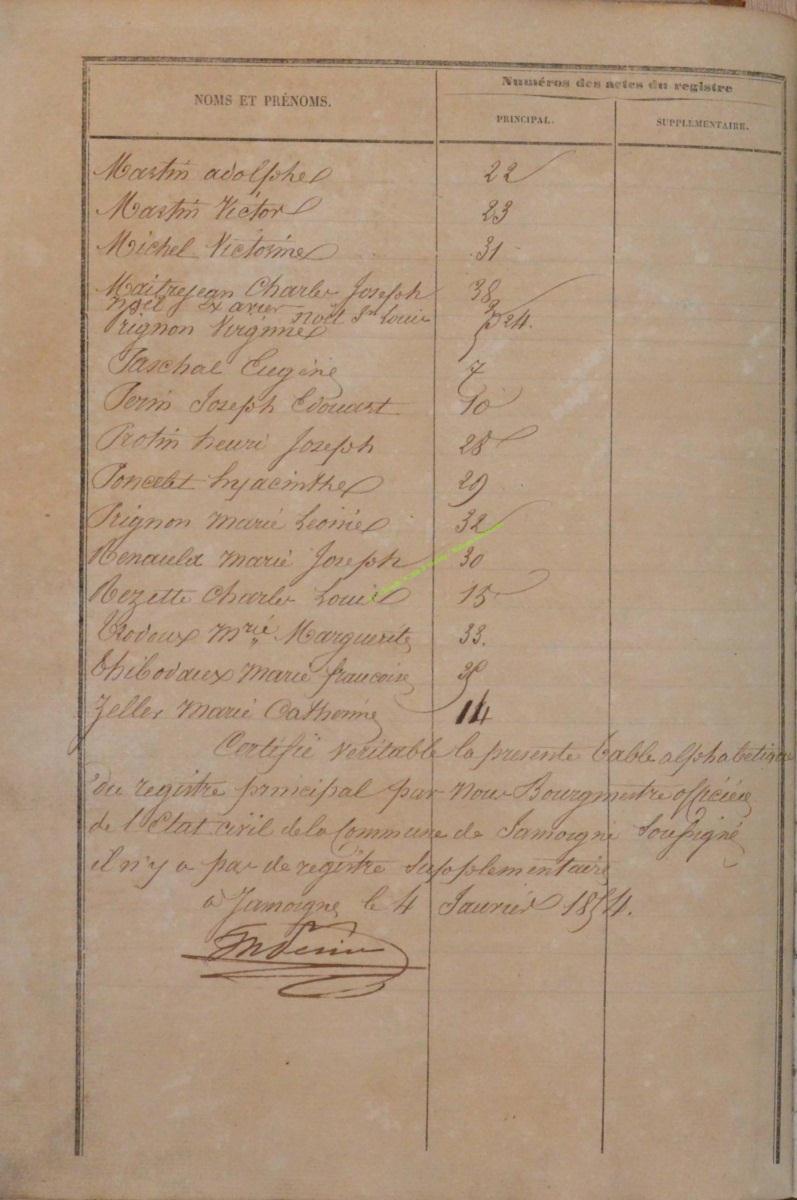 Numéros des actes du registre
NOMS ET PRÉNOMS.
PRINCIPAL. SUPPLEMENTAIRE.
Martin adolphe 22
Martin Victor 23
Michel Victorine 31
Maitrejean Charles Joseph 38
Noël Xavier Noël Jn Louis 3 24.
Prignon Virginie 5
Paschal Eugène 7
Perin Joseph Edouart 10
Protin henri Joseph 28
Poncelet hyacinthe 29
Prignon marie Leonie 32
Renauld marie Joseph 30
Rezette Charles Louis 15
Mrie Marguerite 33.
thibodaux marie francoise
Zeller Marie Catherine 14
Certifié veritable la presente table alphabetique
du registre principal par nous Bourgmestre officier
de l'Etat civil de la Commune de Jamoigne Soussigné
il n'y a pas de registre Supplementaire
a Jamoigne le 4 Janvier 1854.